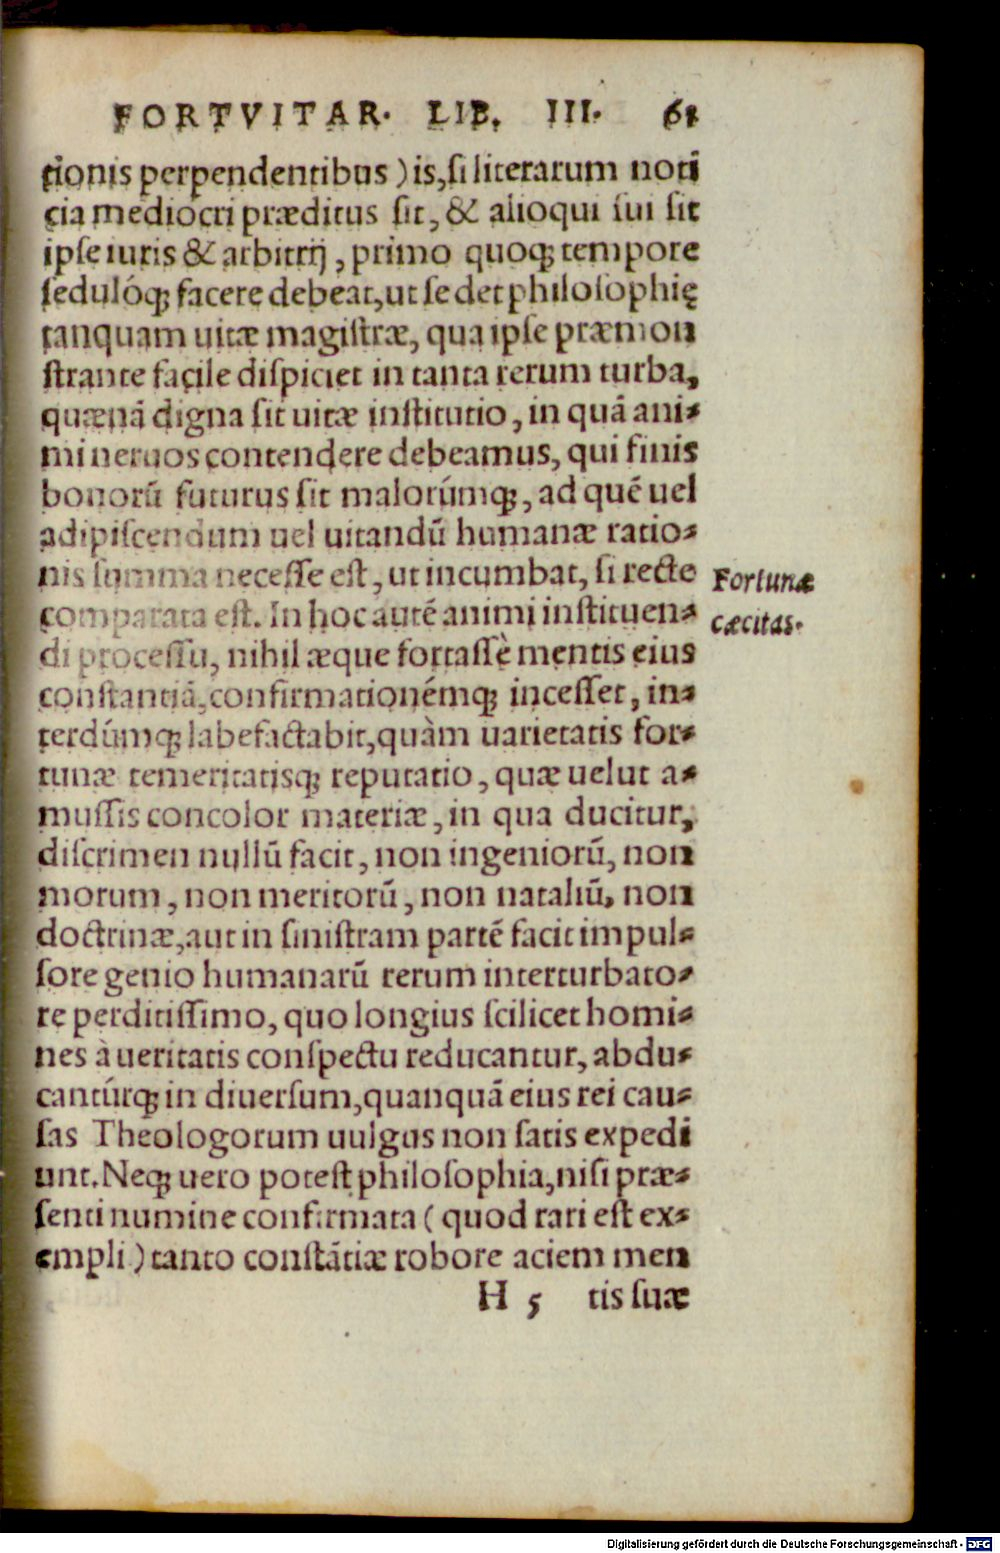 FORTVITAR. LIB. III. 61
tionis perpendentibus) is, si literarum noti
cia mediocri præditus sit, & alioqui sui sit
ipse iuris & arbitrij, primo quoq; tempore
sedulóq; facere debeat, ut se det philosophię
tanquam uitæ magistræ, qua ipse præmon
strante facile dispiciet in tanta rerum turba,
quænã digna sit uitæ institutio, in quã ani-
mi neruos contendere debeamus, qui finis
bonorũ futurus sit malorúmq;, ad quẽ uel
adipiscendum uel uitandũ humanæ ratio-
nis summa necesse est, ut incumbat, si recte
comparata est. In hoc autẽ animi instituen-
di processu, nihil æque fortassè mentis eius
constantiã, confirmationémq; incesset, in-
terdúmq; labefactabit, quàm uarietatis for-
tunæ temeritatisq; reputatio, quæ uelut a-
mussis concolor materiæ, in qua ducitur,
discrimen nullũ facit, non ingeniorũ, non
morum, non meritorũ, non nataliũ, non
doctrinæ, aut in sinistram partẽ facit impul-
sore genio humanarũ rerum interturbato-
re perditissimo, quo longius scilicet homi-
nes à ueritatis conspectu reducantur, abdu-
cantúrq; in diuersum, quanquã eius rei cau-
sas Theologorum uulgus non satis expedi
unt. Neq; uero potest philosophia, nisi præ-
senti numine confirmata (quod rari est ex-
empli) tanto constãtiæ robore aciem men
H 5 tis suæ
Fortunæ
cæcitas.
Digitalisierung gefördert durch die Deutsche Forschungsgemeinschaft - DFG